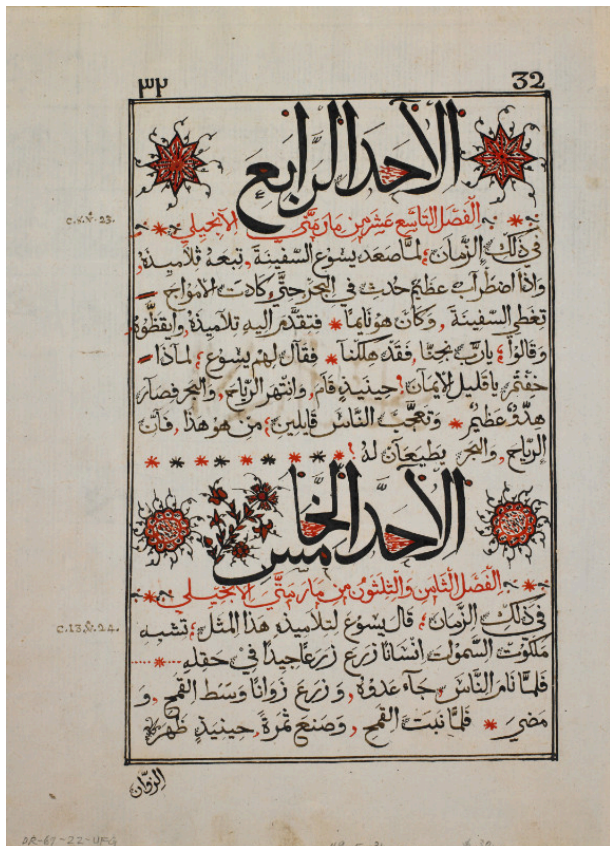 ٣٢ 32
الأحد الرابع
الفصل التاسع عشر من مار متي الانجيلي
في ذلك الزمان؛ لمَّا صعد يسوع السفينة, تبعهُ تلاميذهُ,
واذا اضطراب عظيم حدث في البحر, حتَّي كادت الامواج
تغطي السفينة, وكان هو نايمًا * فتقدَّم اليهِ تلاميذهُ, وايقظوهُ
وقالوا؛ يا ربّ نجنا, فقد هلكنا * فقال لهم يسوع؛ لماذا
خفتم يا قليل الايمان؟ حينيذٍ قام, وانتهر الرياح, والبحر فصار
هدوٌ عظيمٌ * وتعجَّب الناس قايلين؛ من هو هذا, فان
الرياح, والبحر يطيعان لهُ؟ * * * * * * * *
الأحد الخامس
الفصل الثامن والثلثون من مار متَّي الانجيلي
c.v.8.23.
في ذلك الزمان؛ قال يسوع لتلاميذهِ هذا المثل؛ تشبه
c.13.v.24.
ملكوت السموات انسانًا زرع زرعًا جيدًا في حقلهِ *
فلمَّا نام الناس, جاء عدوهُ, وزرع زوانًا وسط القمح, و
مضي * فلمَّا نبت القمح, وصنع ثمرةً, حينيذٍ ظهر
الزوان
DR-67-22-UFG